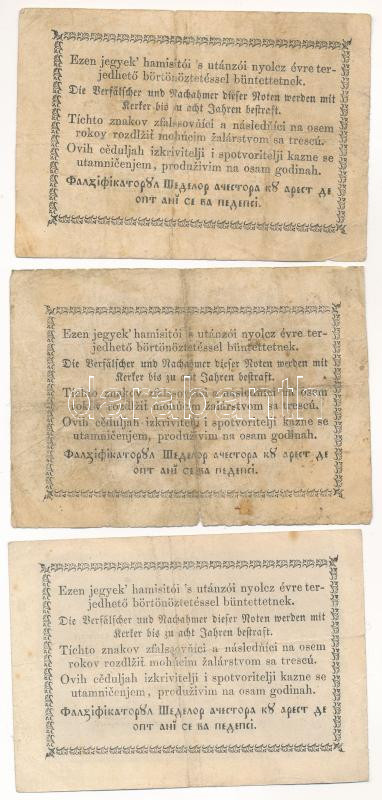 Ezen jegyek' hamisitói 's utánzói nyolcz évre ter-
jedhető börtönöztetéssel büntettetnek.
Die Verfälscher und Nachahmer dieser Noten werden mit
Kerker bis zu acht Jahren bestraft.
Tíchto znakov zfalssovňíci a následňíci na osem
rokov rozdlžit mohúcim žalárstvom sa trescú.
Ovih cěduljah izkrivitelji i spotvoritelji kazne se
utamničenjem, produživim na osam godinah.
Фалꙁіфікаторꙋл Шеделор ачестора кꙋ арест де
опт анї се ва педепсі.
Ezen jegyek' hamisitói 's utánzói nyolcz évre ter-
jedhető börtönöztetéssel büntettetnek.
Die Verfälscher und Nachahmer dieser Noten werden mit
Kerker bis zu acht Jahren bestraft.
Tíchto znakov zfalssovňíci a následňíci na osem
rokov rozdlžit mohúcim žalárstvom sa trescú.
Ovih cěduljah izkrivitelji i spotvoritelji kazne se
utamničenjem, produživim na osam godinah.
Фалꙁіфікаторꙋл Шеделор ачестора кꙋ арест де
опт анї се ва педепсі.
Ezen jegyek' hamisitói 's utánzói nyolcz évre ter-
jedhető börtönöztetéssel büntettetnek.
Die Verfälscher und Nachahmer dieser Noten werden mit
Kerker bis zu acht Jahren bestraft.
Tíchto znakov zfalssovňíci a následňíci na osem
rokov rozdlžit mohúcim žalárstvom sa trescú.
Ovih cěduljah izkrivitelji i spotvoritelji kazne se
utamničenjem, produživim na osam godinah.
Фалꙁіфікаторꙋл Шеделор ачестора кꙋ арест де
опт анї се ва педепсі.